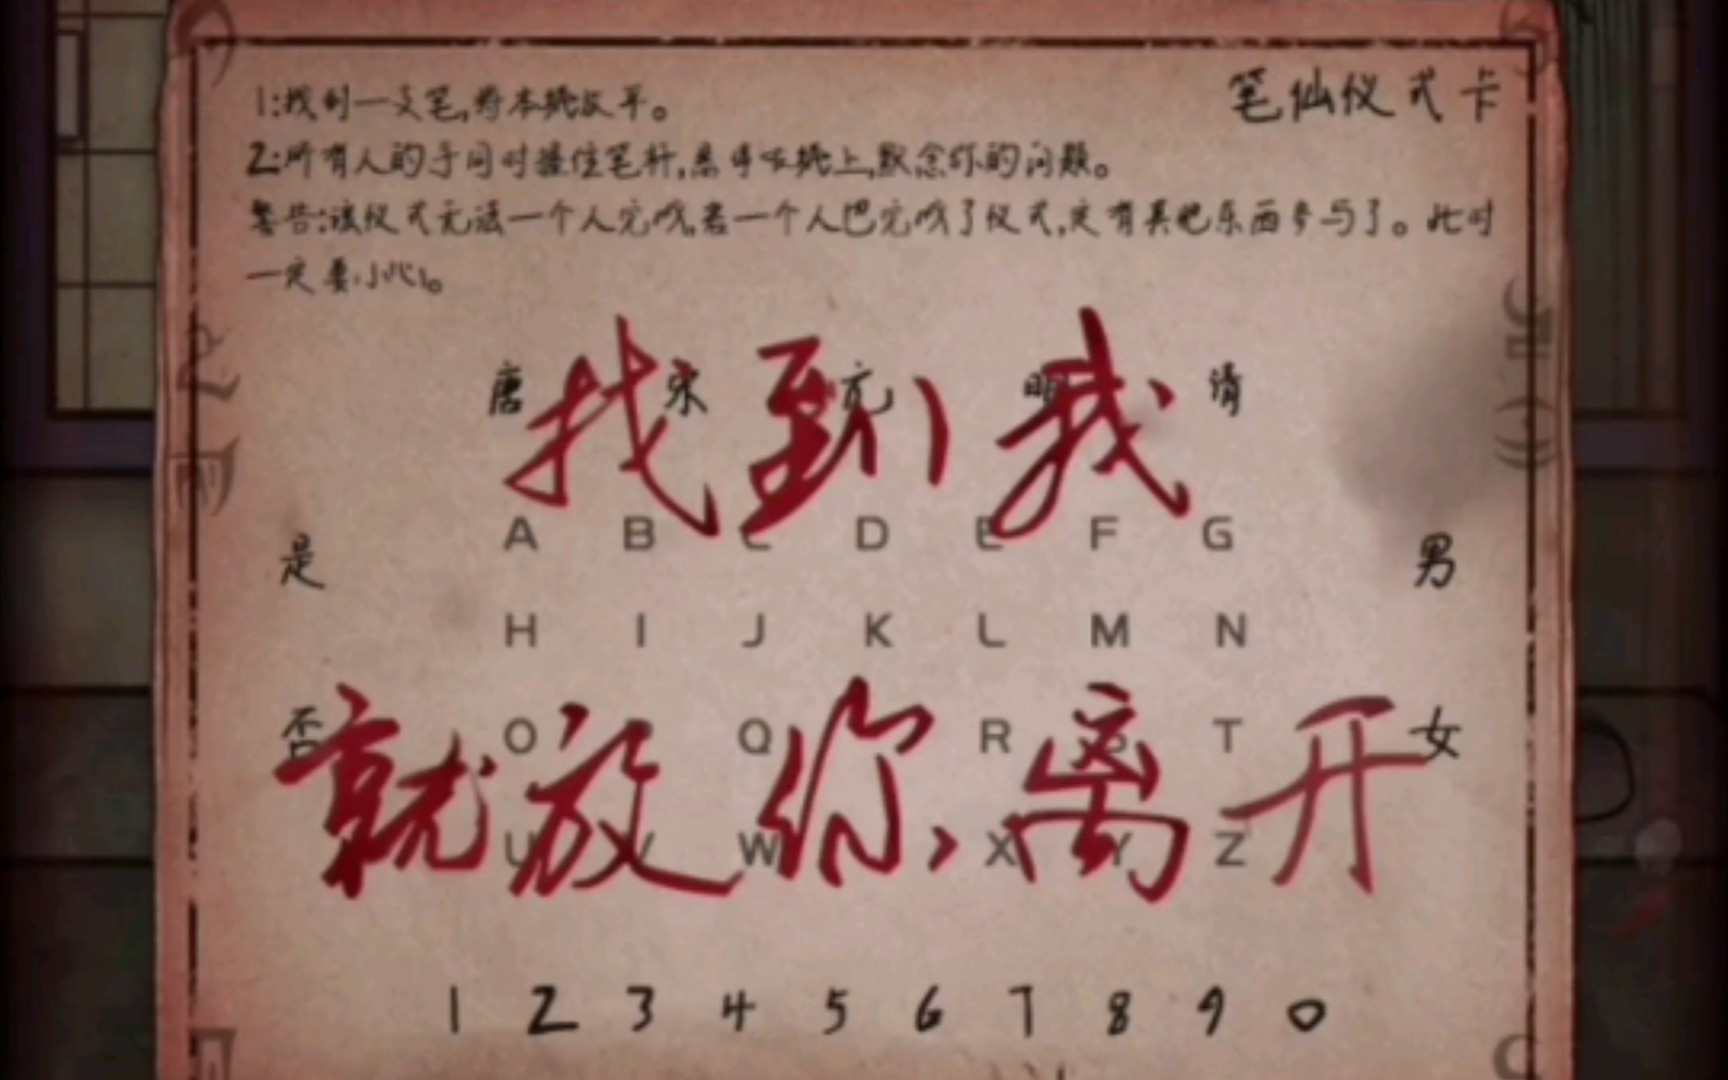 笔仙仪式卡
1:找到一支笔,将本挑放平。
2:所有人的手同时握住笔杆,悬停在挑上,默念你的问题。
警告:该仪式无法一个人完成,若一个人已完成了仪式,定有其他东西参与了。此时
一定要小心。
唐 宋 元 明 清
找到我
A B C D E F G
是 男
H I J K L M N
否 O Q R S T 女
就放你离开
U V W X Y Z
1 2 3 4 5 6 7 8 9 0